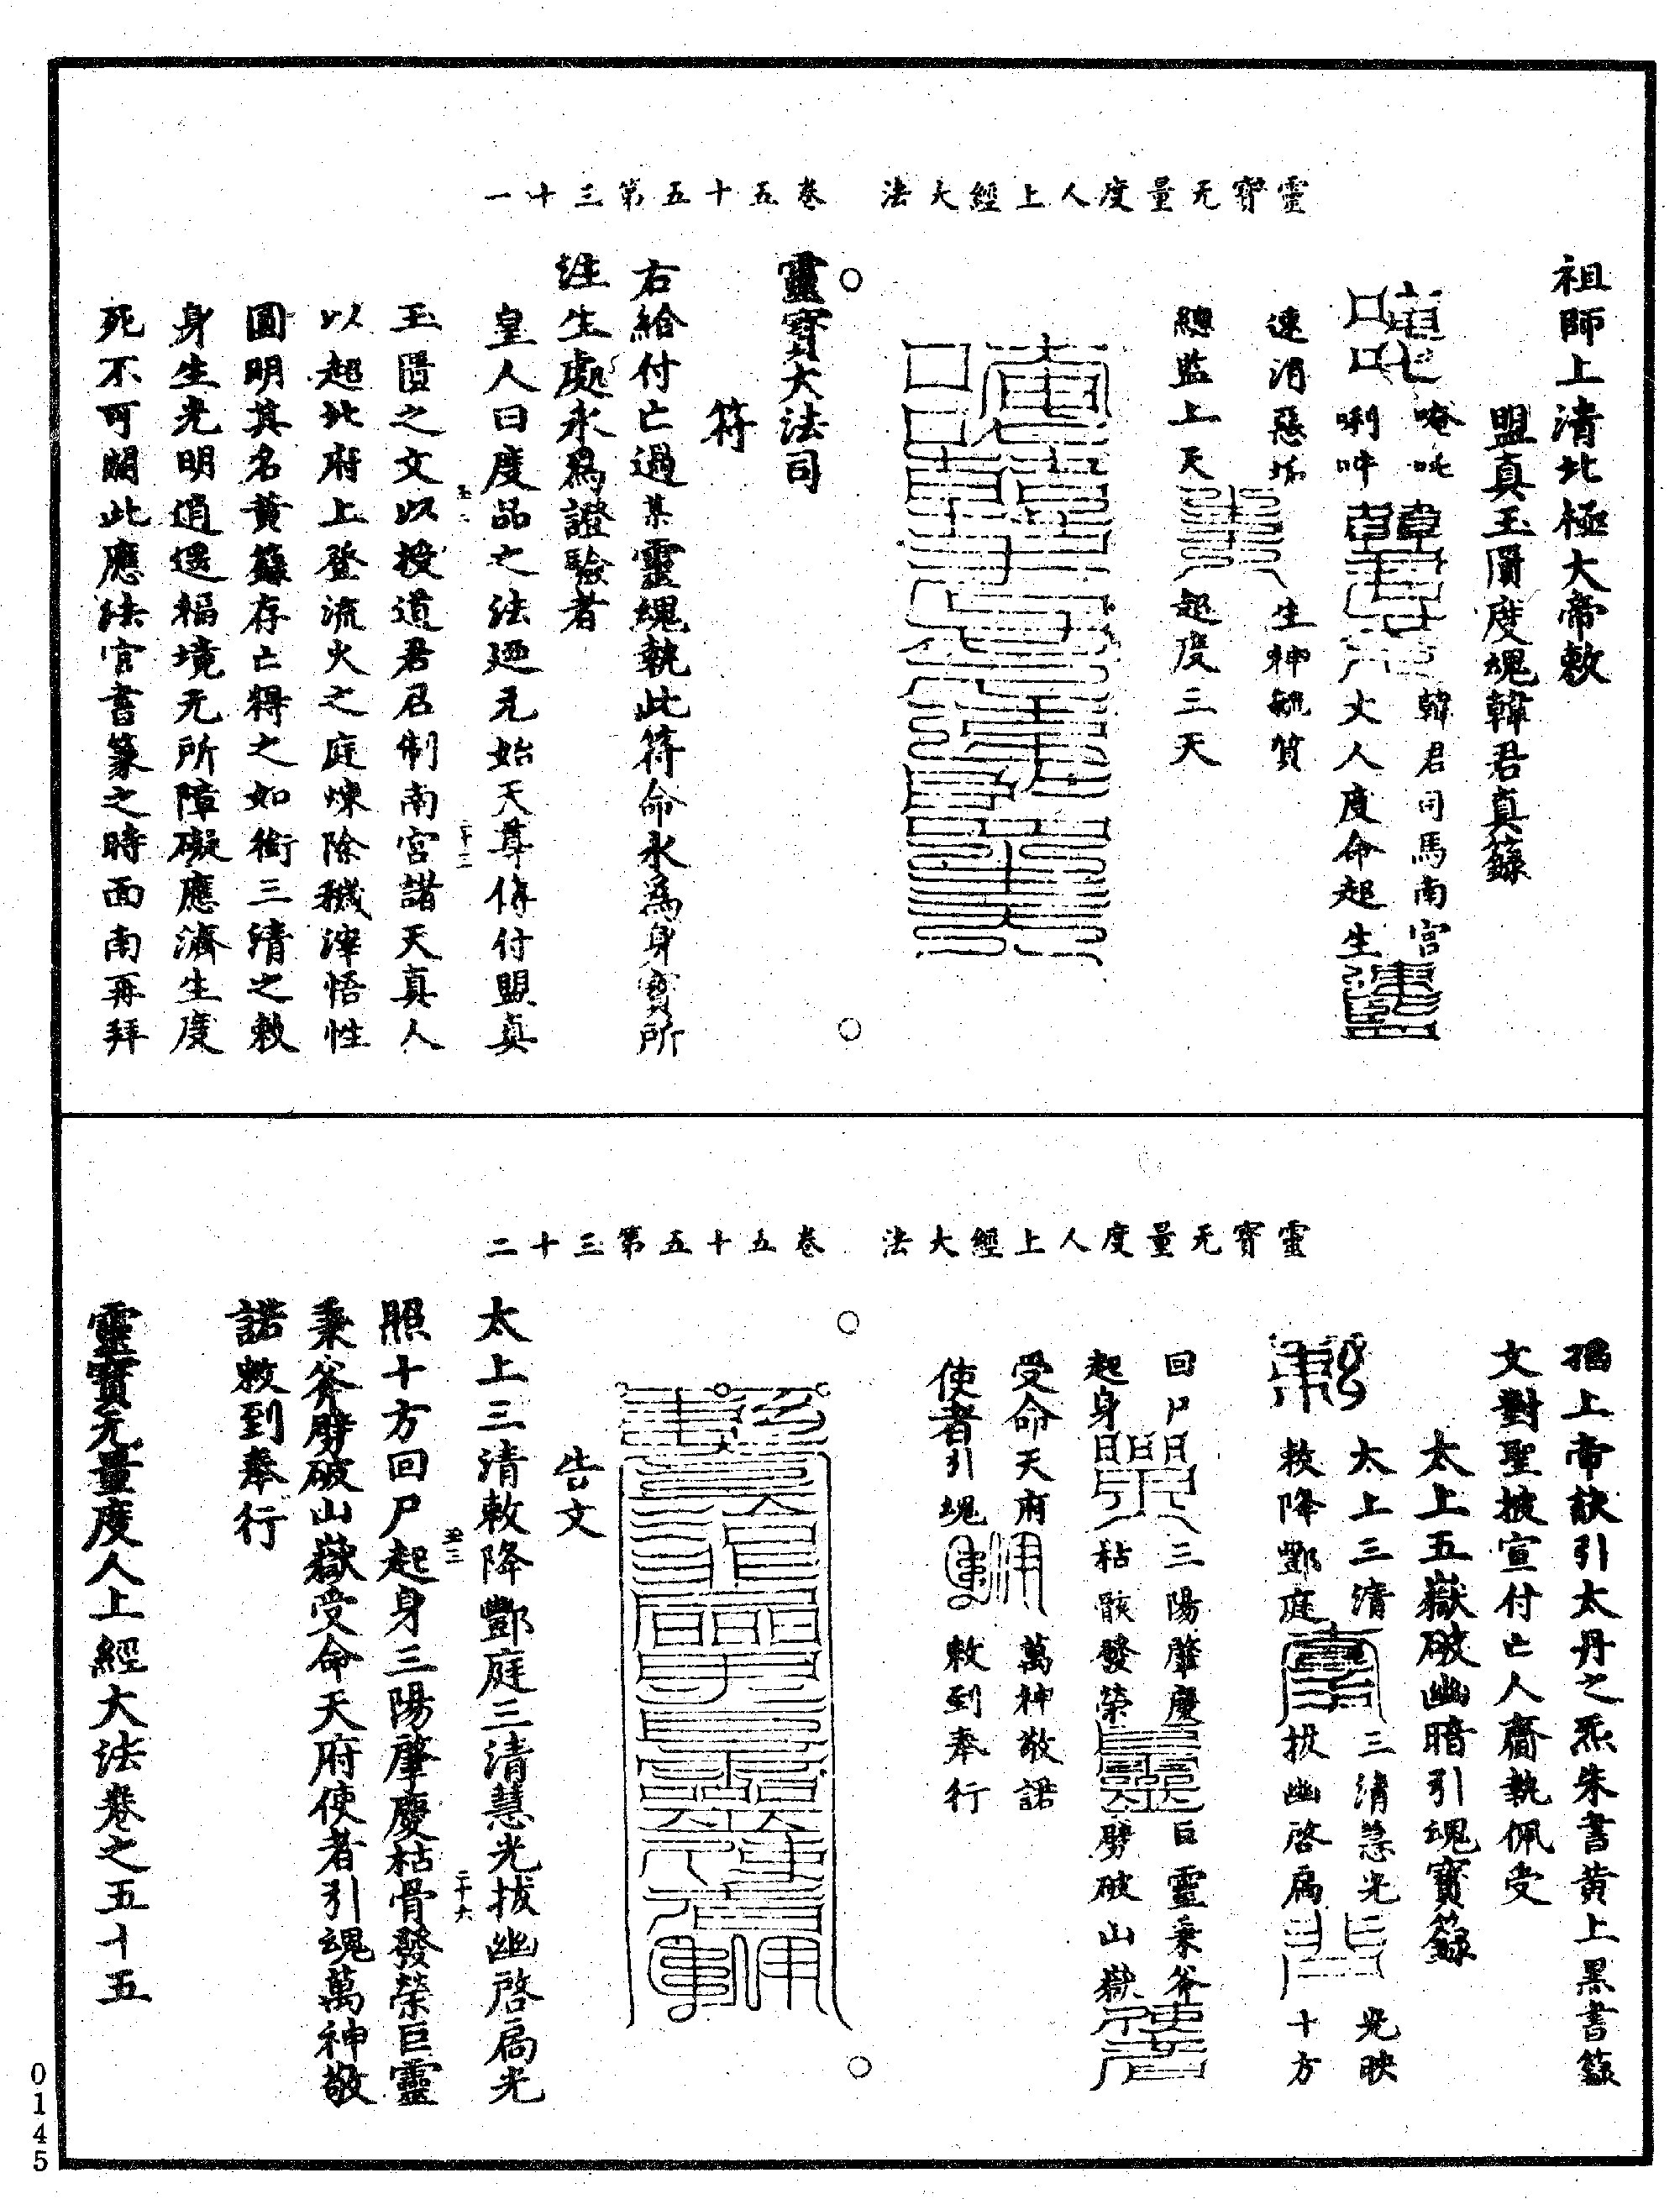 靈寳无量度人上經大法　卷五十五第三十一
祖師上清北極大帝敕
盟真玉匱度魂韓君真籙
唵吽
韓君司馬南宮
唎吽
火人度命起生
速消惡垢
生神
質
總監上天
起度三天
靈寳大法司
符
右給付亡過某靈魂執此符命永為身寳所
往生處永為證驗者
皇人曰度品之法廼元始天尊俾付盟真
玉匱之文以授道君召制南宮諸天真人
以超北府上登流火之庭煉除穢滓悟性
圓明其名黃籙存亡得之如銜三清之敕
身生光明逍遥福境无所障礙應濟生度
死不可闕此應法官書篆之時面南再拜
靈寳无量度人上經大法　卷五十五第三十二
揖上帝訣引太丹之炁朱書黃上黑書籙
文對聖披宣付亡人齎執佩受
太上五嶽破幽暗引魂寳籙
太上三清
三清慧光
光映
敕降酆庭
拔幽啓扄
十方
回尸
三陽肇慶
巨靈秉斧
起身
枯骸發榮
劈破山嶽
受命天府
萬神敬諾
使者引魂
敕到奉行
告文
太上三清敕降酆庭三清慧光拔幽啓扄光
照十方回尸起身三陽肇慶枯骨發榮巨靈
秉斧劈破山嶽受命天府使者引魂萬神敬
諾敕到奉行
靈寳无量度人上經大法卷之五十五
0145